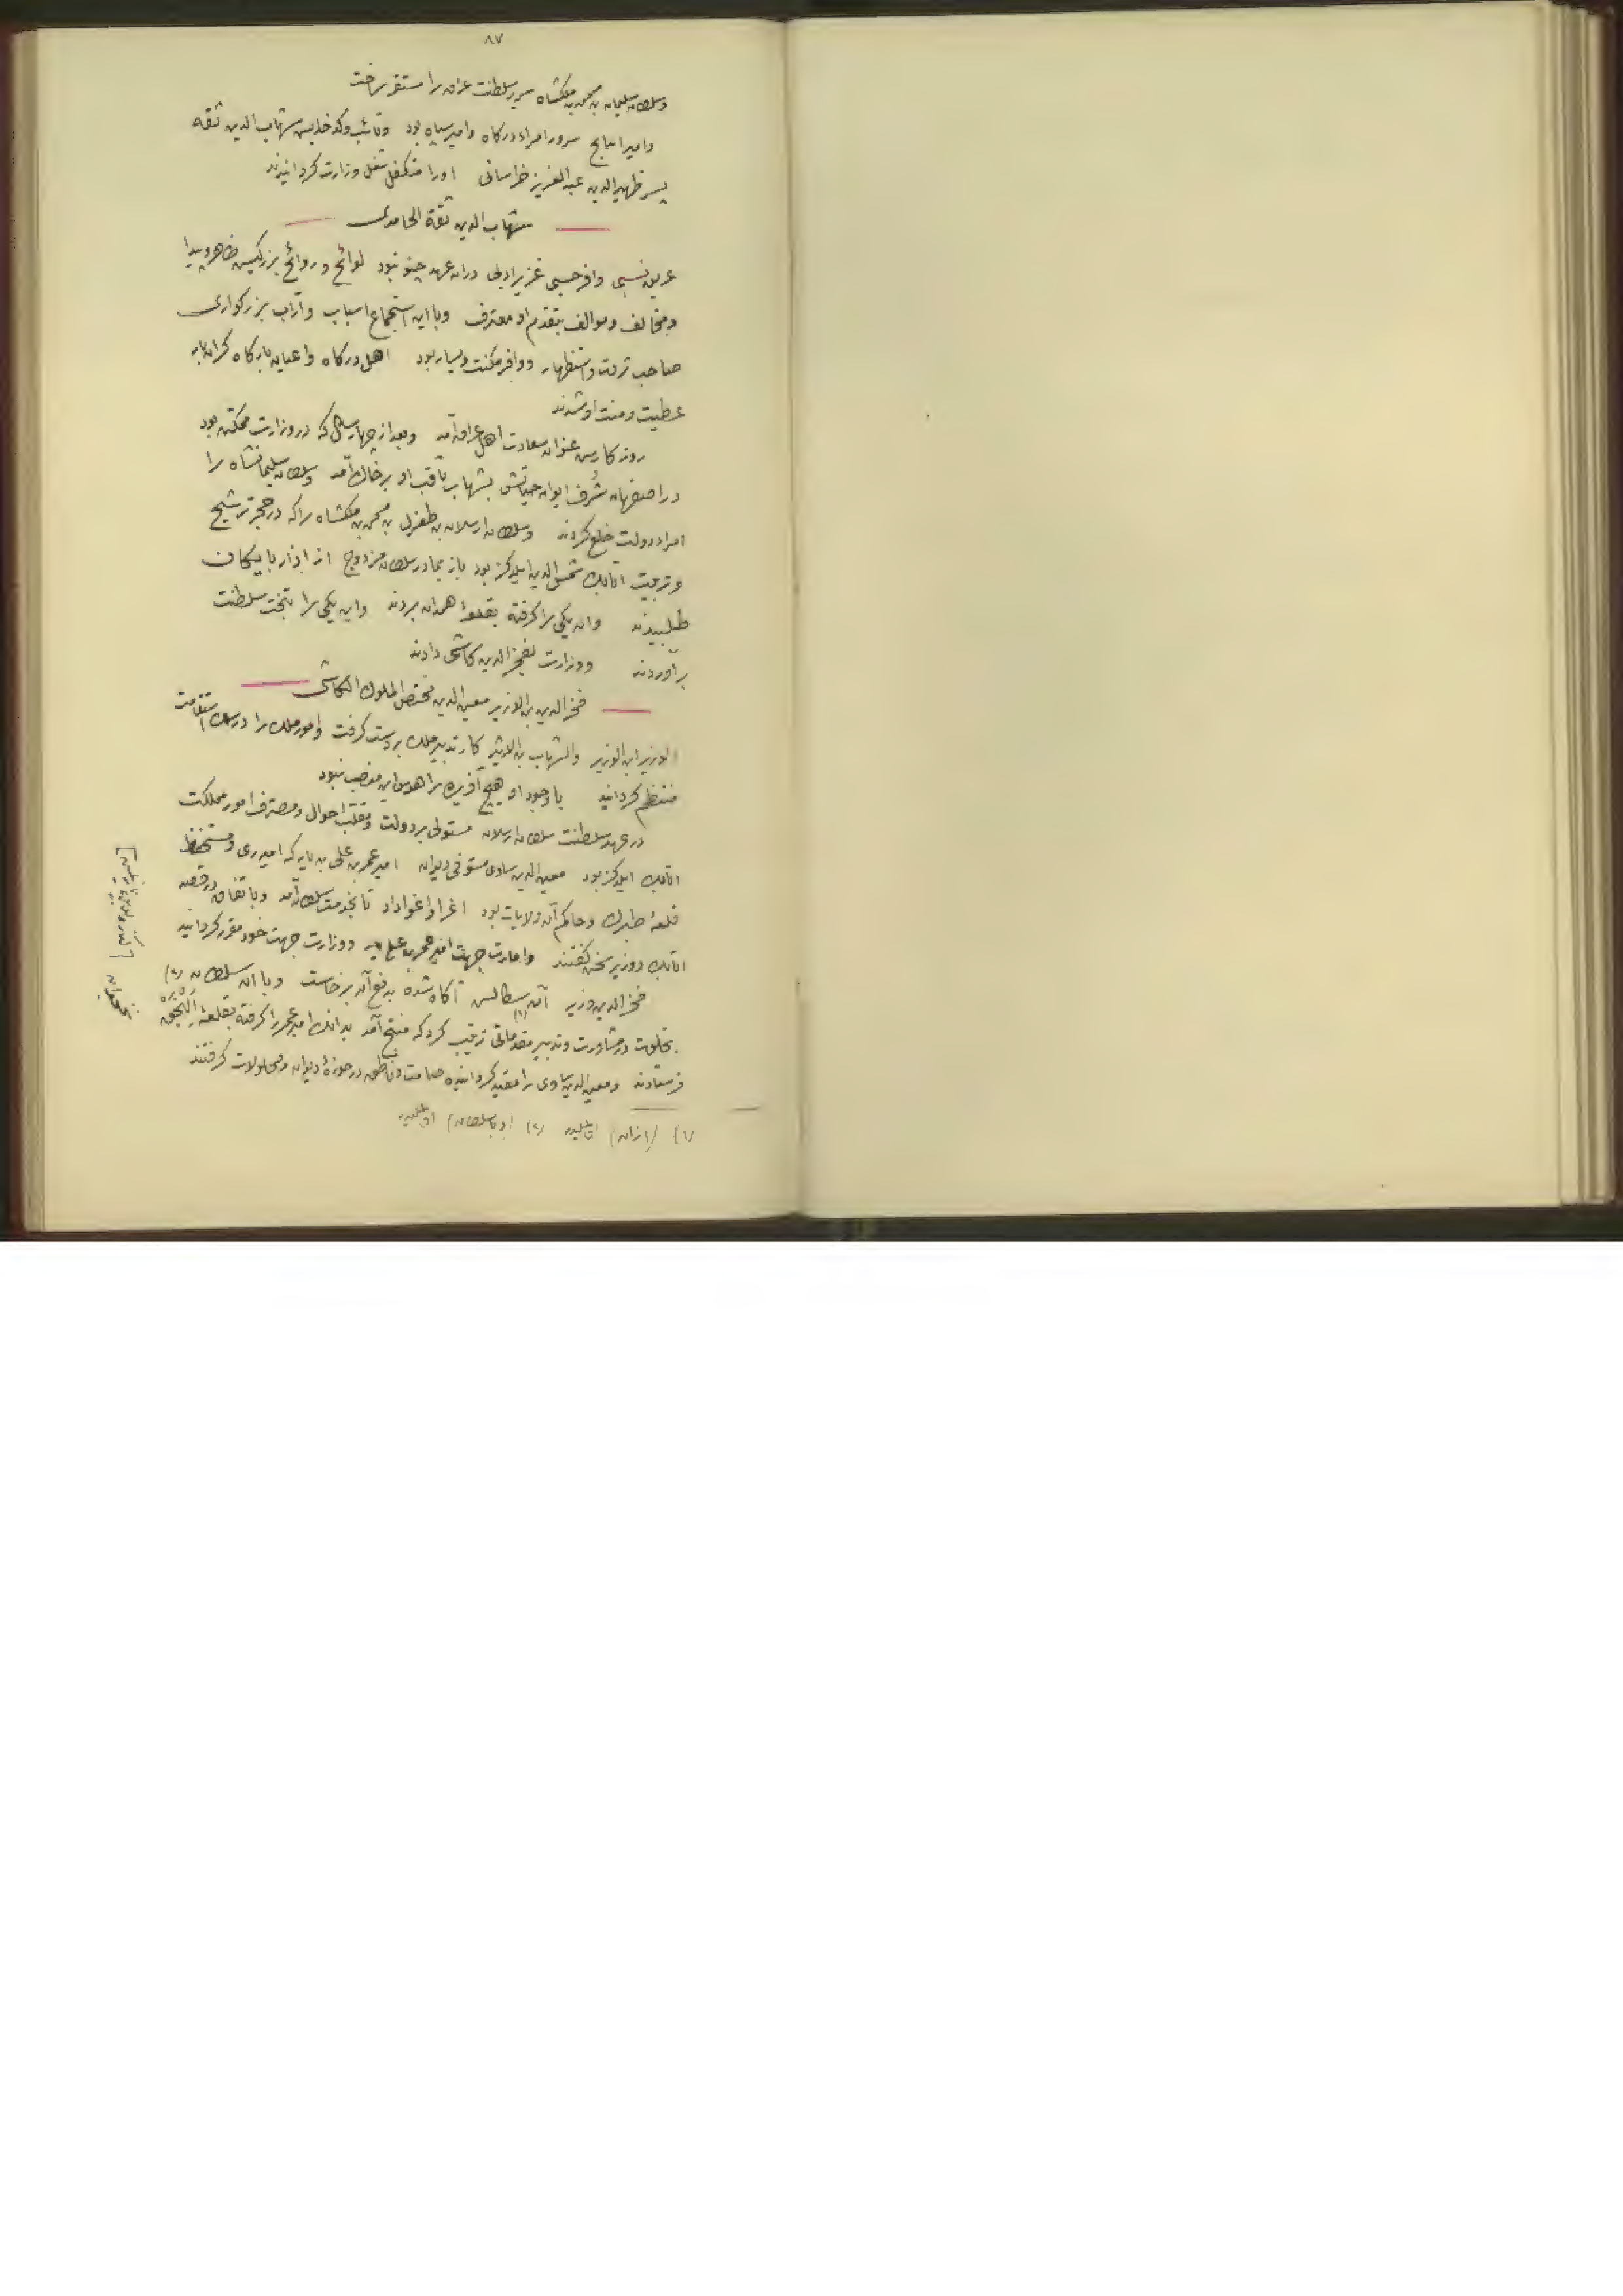 ٨٧
وسلطان سليمان بن محمد بن ملكشاه سرير سلطنت عراق را مستقر ساخت
وامير اينانج سرور امراء دركاه وامير سپاه بود ونائب وكدخدايس شهاب الدين ثقه
پسر ظهير الدين عبد العزيز خراسانى اورا متكفل شغل وزارت كردانيدند
شهاب الدين ثقة الحامدى
عريق نسبى وافر حسبى غزير ادبى دران عهد چنو نبود لوائح وروائح بزركيس ظاهر وپيدا
ومخالف وموالف بتقدم او معترف وبا اين استجماع اسباب وآداب بزركوارى
صاحب ثروت واستظهار ووافر مكنت ويسار بود اهل دركاه واعيان باركاه كرانبار
عطيت ومنت او شدند
روزكارس عنوان سعادت اهل عراق آمد وبعد از چهار سال كه در وزارت ممكن بود
در اصفهان شرف ايوان حياتش بشهاب ثاقب او بر خاك آمد وسلطان سليمانشاه را
امراء دولت خلع كردند وسلطان ارسلان بن طغرل بن محمد بن ملكشاه را كه در حجر ترشيح
وتربيت اتابك شمس الدين ايلدكز بود باز بمادر سلطان مزدوج از اذربايكان
طلبيدند وان يكى را كرفته بقلعه همدان بردند واين يكى را بتخت سلطنت
برآوردند ووزارت بفخر الدين كاشى دادند
فخر الدين بن الوزير معين الدين مختص الملوك الكاشى
الوزير ابن الوزير والشهاب بن الاثير كار تدبير ملك بر دست كرفت وامور ملك را در سلك استقامت
منتظم كردانيد با وجود او هيچ آفريده را هوس اين منصب نبود
در عهد سلطنت سلطان ارسلان مستولى بر دولت ومقلب احوال ومصرف امور مملكت
اتابك ايلدكز بود معين الدين ساوى مستوفى ديوان امير عمر بن على بن يار كه امير رى ومستحفظ
قلعۀ طبرك وحاكم آن ولايات بود اغرا واغوا داد تا بخدمت سلطان آمد وباتفاق در قصد
اتابك ووزير سخن كفتند وامارت جهت امير عمر بن على يار ووزارت جهت خود مقرر كردانيد
فخر الدين وزير آن (١) سكالس آكاه شده بدفع آن برخاست وبا ان سلطان (٢)
بخلوت در مشاورت وتدبير مقدماتى ترتيب كرد كه منتج آمد بدانك امير عمر را كرفته بقلعۀ
فرستادند ومعين الدين ساوى را مقيد كردانيده صامت وناطق در حوزۀ ديوان ومحلولات كرفتند
(١) (ازان) (٢) (وبا سلطان)